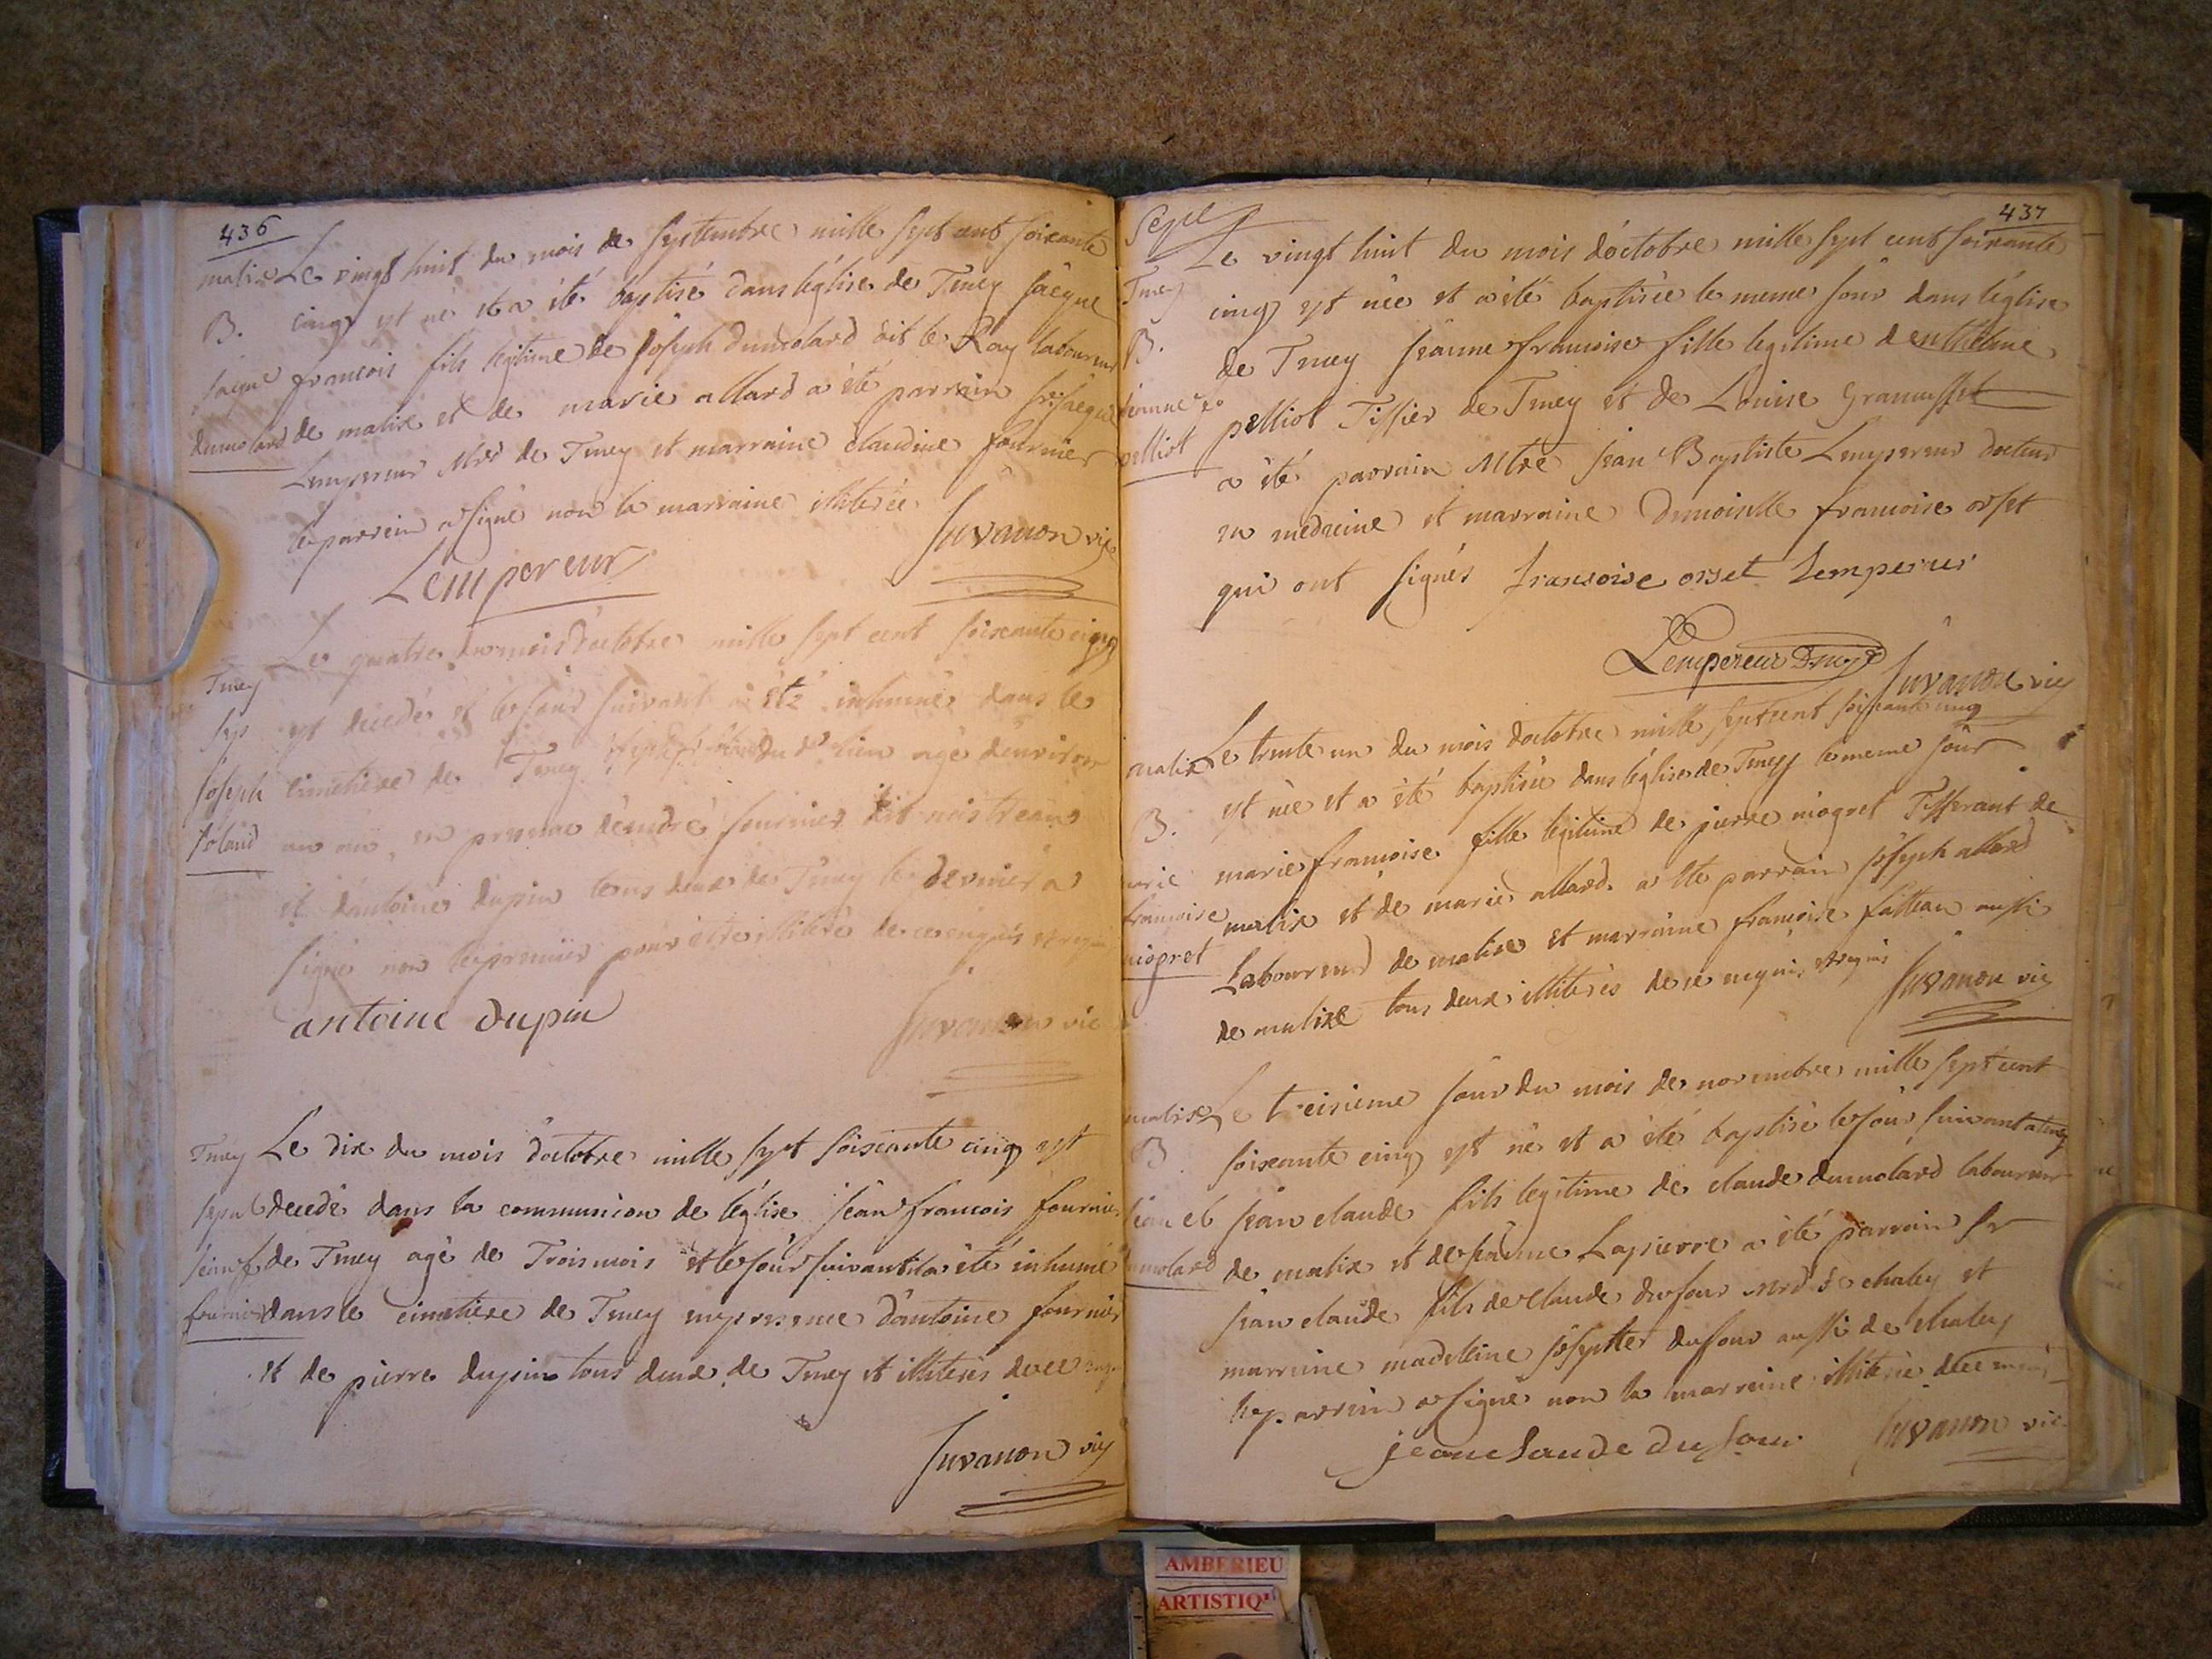 436
matix Le vingt huit du mois de septembre mille sept cent soixante
B. cinq est né et a été baptisé dans l'église de Teney jacque
jacque francois fils legitime de joseph dumolard dit le Roy laboureur
dumolard de matix et de marie allard a été parrain sr jacque
Lempereur Mrd de Teney et marraine claudine fournier
le parrein a signé non la marraine illiterée
Lempereur Juvanon vic
Le quatre du mois d'octobre mille sept cent soixante cinq
Teney
sep est décédé et le jour suivant a été inhumé dans le
joseph cimetiere de Teney joseph du d lieu agé d'environ
un an, en presence d'andré fournier dit
et d'antoine dupin tous deux de Teney le dernier a
signé non le premier pour etre illiteré de ce enquis et requis
antoine dupin Juvanon vic
Teney Le dix du mois d'octobre mille sept soixante cinq est
sepul decedé dans la communion de l'église jean francois fournier
jean f de Teney agé de Trois mois et le jour suivant il a été inhumé
fournier dans le cimetiere de Teney en presence d'antoine fournier
et de pierre dupin tous deux de Teney et illiterés de ce enquis
Juvanon vic
437
Le vingt huit du mois d'octobre mille sept cent soixante
Teney cinq est née et a été baptisée le meme jour dans l'église
B. de Teney jeanne francoise fille legitime d'enthelme
jeanne fo pelliot Tissier de Teney et de Louise Gramusset
pelliot a été parrain Mtre jean Baptiste Lempereur docteur
en medecine et marraine demoiselle francoise orset
qui ont signés francoise orset Lempereur
Lempereur Juvanon vic
matix Le trente un du mois d'octobre mille sept cent soixante cinq
B. est née et a été baptisée dans l'église de Teney le meme jour
marie marie françoise fille legitime de pierre niogret Tisserant de
francoise matix et de marie allard a été parrain joseph allard
niogret Laboureur de matix et marraine françoise aussi
de matix tous deux illiterés de ce enquis et requis Juvanon vic
matix Le treisieme jour du mois de novembre mille sept cent
B. soixante cinq est né et a été baptisé le jour suivant a teney
jean cl jean claude fils legitime de claude dumolard laboureur
dumolard de matix et de jeanne Lapierre a été parrain sr
jean claude fils de claude dufour Mrd de chaley et
marraine madeleine josephte dufour aussi de chaley
le parrein a signé non la marreine illiterée de ce
jean claude dufour Juvanon vic
AMBERIEU
ARTISTIQ